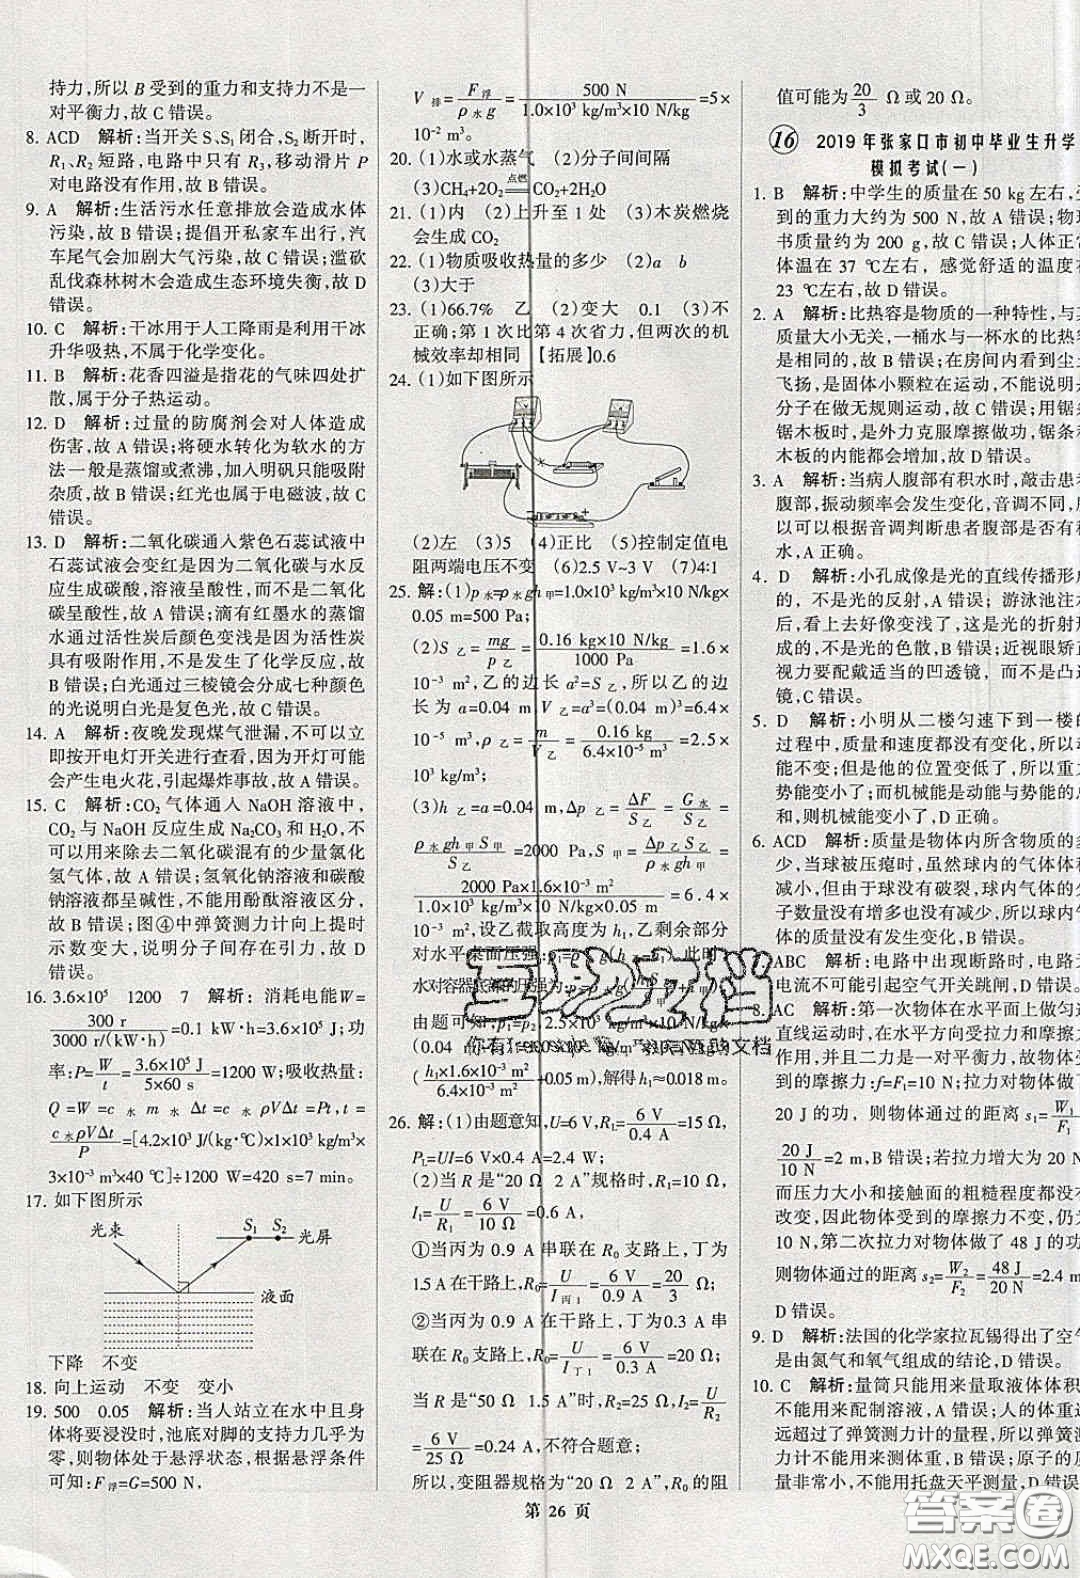 持力,所以 B 受到的重力和支持力不是一
对平衡力,故 C 错误。
8. ACD 解析:当开关 S、S₁ 闭合,S₂ 断开时,
R₁、R₂ 短路,电路中只有 R₃,移动滑片 P
对电路没有作用,故 B 错误。
9. A 解析:生活污水任意排放会造成水体
污染,故 B 错误;提倡少开私家车出行,汽
车尾气会加剧大气污染,故 C 错误;滥砍
乱伐森林树木会造成生态环境失衡,故 D
错误。
10. C 解析:干冰用于人工降雨是利用干冰
升华吸热,不属于化学变化。
11. B 解析:花香四溢是指花的气味四处扩
散,属于分子热运动。
12. D 解析:过量的防腐剂会对人体造成
伤害,故 A 错误;将硬水转化为软水的方
法一般是蒸馏或煮沸,加入明矾只能吸附
杂质,故 B 错误;红光也属于电磁波,故 C
错误。
13. D 解析:二氧化碳通入紫色石蕊试液中
石蕊试液会变红是因为二氧化碳与水反
应生成碳酸,溶液呈酸性,而不是二氧化
碳呈酸性,故 A 错误;滴有红墨水的蒸馏
水通过活性炭后颜色变浅是因为活性炭
具有吸附作用,不是发生了化学反应,故 B
错误;白光通过三棱镜会分散为七种颜色
的光说明白光是复色光,故 C 错误。
14. A 解析:夜晚发现煤气泄漏,不可以立
即按开电灯开关进行查看,因为开灯可能
会产生电火花,引起爆炸事故,故 A 错误。
15. C 解析:CO₂ 气体通入 NaOH 溶液中,
CO₂ 与 NaOH 反应生成 Na₂CO₃ 和 H₂O,不
可以用来除去二氧化碳混有的少量氯化
氢气体,故 A 错误;氢氧化钠溶液和碳酸
钠溶液都呈碱性,不能用酚酞溶液区分,
故 B 错误;图④中弹簧测力计向上提时
示数变大,说明分子间存在引力,故 D
错误。
16. 3.6×10⁵ 1200 7 解析:消耗电能W=
300 r/3000 r/(kW·h)=0.1 kW·h=3.6×10⁵ J;功
率:P=W/t=3.6×10⁵ J/5×60 s=1200 W;吸收热量:
Q=W=c水m水Δt=c水ρVΔt=Pt,t=
c水ρVΔt/P=[4.2×10³ J/(kg·℃)×1×10³ kg/m³×
3×10⁻³ m³×40 ℃]÷1200 W=420 s=7 min。
17. 如下图所示
光束 S₁ S₂ 光屏
液面
下降 不变
18. 向上运动 不变 变小
19. 500 0.05 解析:当人站立在水中且身
体将要浸没时,池底对脚的支持力几乎为
零,则物体处于悬浮状态,根据悬浮条件
可知:F浮=G=500 N,
V排=F浮/ρ水g=500 N/1.0×10³ kg/m³×10 N/kg=5×
10⁻² m³。
20. (1)水或水蒸气 (2)分子间间隔
(3)CH₄+2O₂ 点燃
21. (1)内 (2)上升至 1 处 (3)木炭燃烧
会生成 CO₂
22. (1)物质吸收热量的多少 (2)a b
(3)大于
23. (1)66.7% 乙 (2)变大 0.1 (3)不
正确;第 1 次比第 4 次省力,但两次的机
械效率却相同 【拓展】0.6
24. (1)如下图所示
(2)左 (3)5 (4)正比 (5)控制定值电
阻两端电压不变 (6)2.5 V~3 V (7)4∶1
25. 解:(1)p水=ρ水gh甲=1.0×10³ kg/m³×10 N/kg×
0.05 m=500 Pa;
(2)S乙=mg/p乙=0.16 kg×10 N/kg/1000 Pa=1.6×
10⁻³ m²,乙的边长 a²=S乙,所以乙的边
长为 a=0.04 m,V乙=a³=(0.04 m)³=6.4×
10⁻⁵ m³,ρ乙=m/V乙=0.16 kg/6.4×10⁻⁵ m³=2.5×
10³ kg/m³;
(3)h乙=a=0.04 m,Δp乙=ΔF/S乙=G水/S乙=
ρ水gh甲S甲/S乙=2000 Pa,S甲=Δp乙S乙/ρ水gh甲=
2000 Pa×1.6×10⁻³ m²/1.0×10³ kg/m³×10 N/kg×0.05 m=6.4×
10⁻³ m²,设乙截取高度为 h₁,乙剩余部分
对水平桌面压强
水对容器底部的压强
由题可知:p₁=p₂
解得 h₁≈0.018 m。
26. 解:(1)由题意知,U=6 V,R₁=6 V/0.4 A=15 Ω,
P_L=UI=6 V×0.4 A=2.4 W;
(2)当 R 是“20 Ω 2 A”规格时,R₁=10 Ω,
I₁=U/R₁=6 V/10 Ω=0.6 A,
①当丙为 0.9 A 串联在 R₀ 支路上,丁为
1.5 A 在干路上,R₀=U/I丙1=6 V/0.9 A=20/3 Ω;
②当丙为 0.9 A 在干路上,丁为0.3 A 串
联在 R₀ 支路上,R₀=U/I丁1=6 V/0.3 A=20 Ω;
当 R 是“50 Ω 1.5 A”时,R₂=25 Ω,I₂=U/R₂
=6 V/25 Ω=0.24 A,不符合题意;
所以,变阻器规格为“20 Ω 2 A”,R₀ 的阻
值可能为 20/3 Ω 或 20 Ω。
16 2019 年张家口市初中毕业生升学
模拟考试(一)
1. B 解析:中学生的质量在 50 kg 左右,受
到的重力大约为 500 N,故 A 错误;物理
书质量约为 200 g,故 C 错误;人体正常
体温在 37 ℃左右,感觉舒适的温度在
23 ℃左右,故 D 错误。
2. A 解析:比热容是物质的一种特性,与
质量大小无关,一桶水与一杯水的比热
是相同的,故 B 错误;在房间内看到尘土
飞扬,是固体小颗粒在运动,不能说明
分子在做无规则运动,故 C 错误;用锯
锯木板时,是外力克服摩擦做功,锯条和
木板的内能都会增加,故 D 错误。
3. A 解析:当病人腹部有积水时,敲击患者
腹部,振动频率会发生变化,音调不同,所
以可以根据音调判断患者腹部是否有积
水,A 正确。
4. D 解析:小孔成像是光的直线传播形成
的,不是光的反射,A 错误;游泳池注水
后,看上去好像变浅了,是由光的折射形
成的,不是光的色散,B 错误;近视眼矫正
视力要配戴适当的凹透镜,不是凸透
镜,C 错误。
5. D 解析:小明从二楼匀速下到一楼的
过程中,质量和速度都没有变化,所以动
能不变;但是他的位置变低了,所以重力
势能变小了;而机械能是动能与势能的总
和,则机械能变小了,D 正确。
6. ACD 解析:质量是物体内所含物质的多
少,当球被压瘪时,虽然球内的气体体积
减小,但由于球没有破裂,球内气体的分
子数量没有增多也没有减少,所以球内气
体的质量没有发生变化,B 错误。
ABC 解析:电路中出现断路时,电路无
电流不可能引起空气开关跳闸,D 错误。
AC 解析:第一次物体在水平面上做匀速
直线运动时,在水平方向受拉力和摩擦力
作用,并且二力是一对平衡力,故物体受
到的摩擦力:f=F₁=10 N;拉力对物体做了
20 J 的功,则物体通过的距离 s₁=W₁/F₁=
20 J/10 N=2 m,B 错误;若拉力增大为 20 N,
而压力大小和接触面的粗糙程度都没有
改变,因此物体受到的摩擦力不变,仍为
10 N,第二次拉力对物体做了 48 J 的功,
则物体通过的距离 s₂=W₂/F₂=48 J/20 N=2.4 m,
D 错误。
9. D 解析:法国的化学家拉瓦锡得出了空气
是由氮气和氧气组成的结论,D 错误。
10. C 解析:量筒只能用来量取液体体积,
不能用来配制溶液,A 错误;人的体重远
远超过了弹簧测力计的量程,所以弹簧
测力计不能用来测体重,B 错误;原子的质
量非常小,不能用托盘天平测量,D 错误。
第 26 页
互助文档
答案圈
MXQE.COM